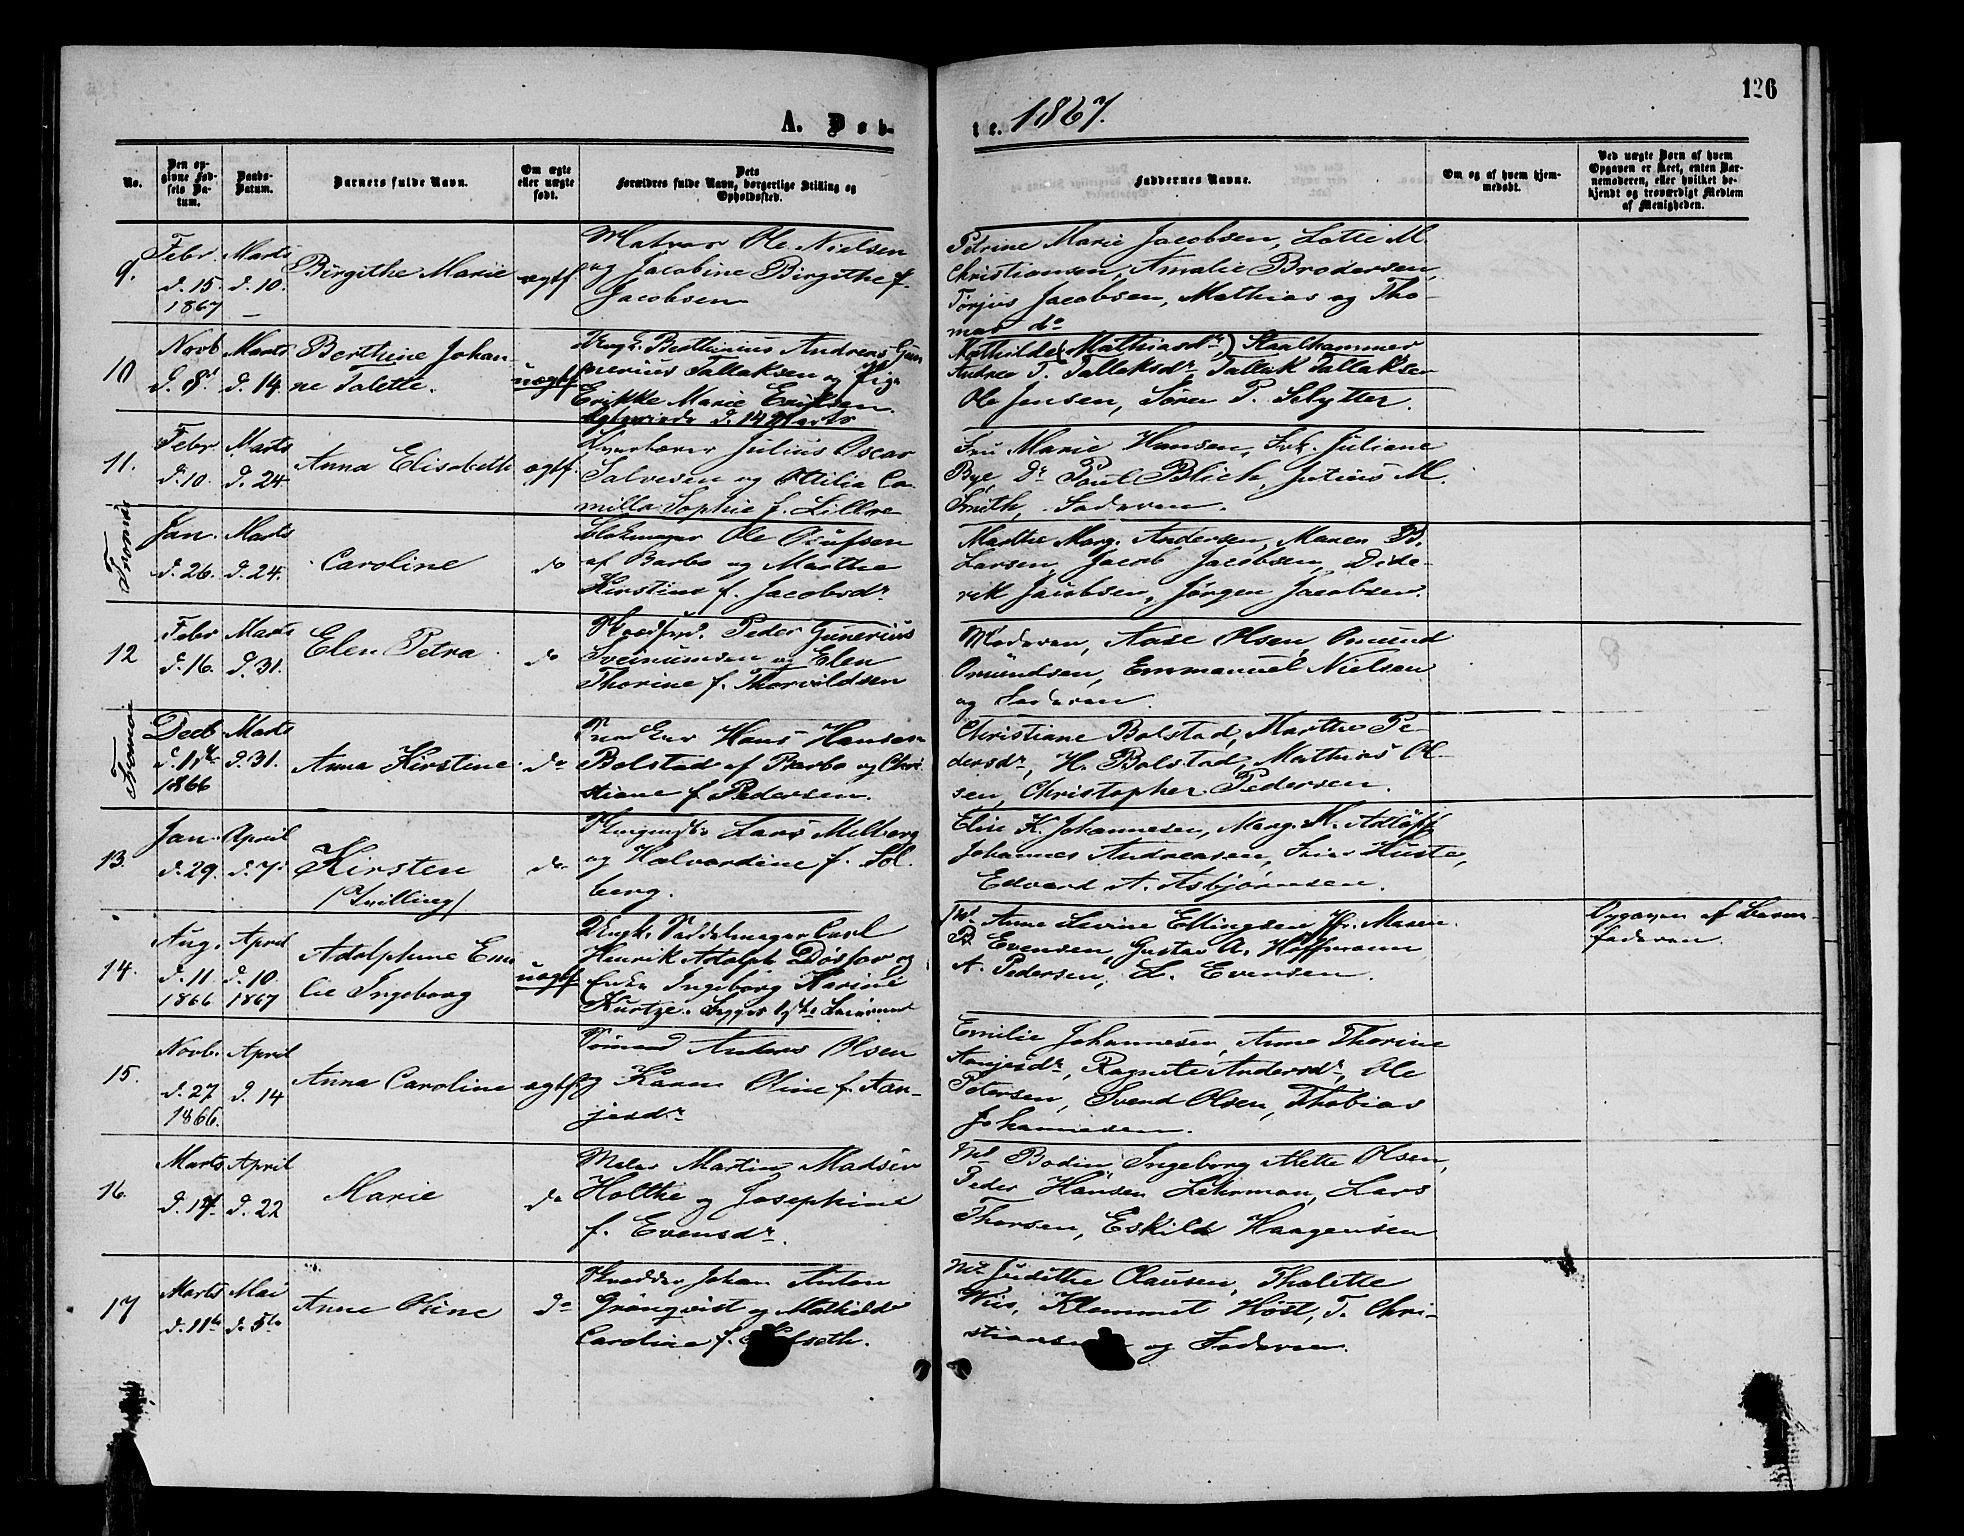 126
A. Døb-
te. 1867.
No.
Den op-
givne Fød-
sels Da-
tum.
Daabs-
Datum.
Barnets fulde Navn.
Om ægte
eller uægte
født.
Dets
Forældres fulde Navn, borgerlige Stilling og
Opholdssted.
Faddernes Navne.
Om og af hvem hjem-
medøbt.
Ved uægte Børn af hvem
Opgaven er skeet, enten Bar-
nemoderen, eller hvilket be-
kjendt og troværdigt Medlem
af Menigheden.
9.
Febr
d. 15.
1867
Marts
d. 10.
Birgithe Marie
ægtf.
Matros Ole Nielsen
og Jacobine Birgithe f.
Jacobsen
Petrine Marie Jacobsen, Lotte M.
Christiansen, Amalie Brodersen,
Torjus Jacobsen, Mathias og Tho-
mas do
10
Novb
d. 8d
Marts
d. 14.
Berthine Johan
ne Talette.
uægtf.
Ungk. Berthinius Andreas Gun
nerius Tallaksen og Pige
Erikke Marie Eriksen.
d. 14 Marts
Mathilde (Mathiasdr) Staalhammer
Andrea T. Tallaksdr, Tallak Tallaksen
Ole Jensen, Søren P. Slytter.
11.
Febr
d. 10.
Marts
d. 24.
Anna Elisabeth
ægtf.
Julius Oscar
Salvesen og Otilia Ca-
milla Sophie f. Lillke
Fru Marie Hansen, Frk. Juliane
Bye, Dr Poul Blich, Julius M.
Smith, Faderen.
Tromøe
Jan.
d. 26.
Marts
d. 24.
Caroline
do
Ole Olufsen
af Barbo og Marthe
Kirstine f. Jacobsdr
Marthe Marg. Andersen, Maren B.
Larsen, Jacob Jacobsen, Dide-
rik Jacobsen, Jørgen Jacobsen.
12
Febr
d. 16.
Marts
d. 31.
Elen Petra
do
Peder Gunerius
Sveinumsen og Elen
Thorine f. Thorvildsen
Moderen, Aase Olsen, Omund
Omundsen, Emmanuel Nielsen
og Faderen.
Tromøe
Decb
1866
Marts
d. 31.
Anna Kirstine
do
Hans Hansen
Bolstad af Barbo og Chri-
stiane f. Pedersen.
Christiane Bolstad, Marthe Pe-
dersdr, H. Bolstad, Mathias Ol-
sen, Christopher Pedersen.
13.
Jan.
d. 29.
April
d. 7.
Kirsten
(Tvilling)
do
Lars Melberg
og Halvardine f. Sol-
berg.
Elise K. Johannesen, Marg. K. Adtoff
Johannes Andreasen,
Edvard A. Asbjørnsen.
14.
Aug.
d. 11
1866
April
d. 10.
1867
Adolphine Emi
lie Ingeborg
uægtf
Ungk. Saddelmager Carl
Henrik Adolph Døscher og
Enke Ingeborg Karine
Kurtze.
Anne Levine Ellingsen, Jfr. Maren
B. Evensen, Gustav A. Hoffmann
A. Pedersen, L. Evensen.
Opgaven af Barne-
faderen.
15.
Novb.
d. 27
1866.
April
d. 14
Anna Caroline
ægtf.
Sømand Anders Olsen
og Karen Oline f. Aan-
jesdr
Emilie Johannesen, Anne Thorine
Aanjesdr, Ragnete Andersdr, Ole
Petersen, Svend Olsen, Thobias
Johannesen.
16.
Marts
d. 14.
April
d. 22
Marie
do
Maler Martin Madsen
Holthe og Josephine
f. Evensdr.
Md Bodin, Ingeborg Alette Olsen,
Peder Hansen Lehrman, Lars
Thorsen, Eskild Haagensen
17
Marts
d. 11te
Mai
d. 5te
Anne Oline
do
Skrædder Johan Anton
Grönqvist og Mathilde
Caroline f.
Judithe Clausen, Thalette
Wiis, Klemmet Høst, T. Chri-
stiansen og Faderen.